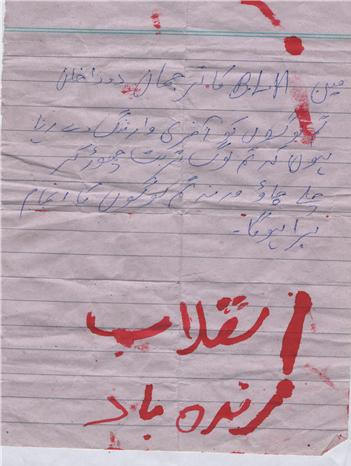 میں B.L.A کا ترجمان دودا خان
تم لوگوں کو آخری وارننگ دے رہا
ہوں کہ تم لوگ شہر چھوڑ کر
چلے جاؤ ورنہ تم لوگوں کا انجام
برا ہوگا۔
انقلاب
زندہ باد